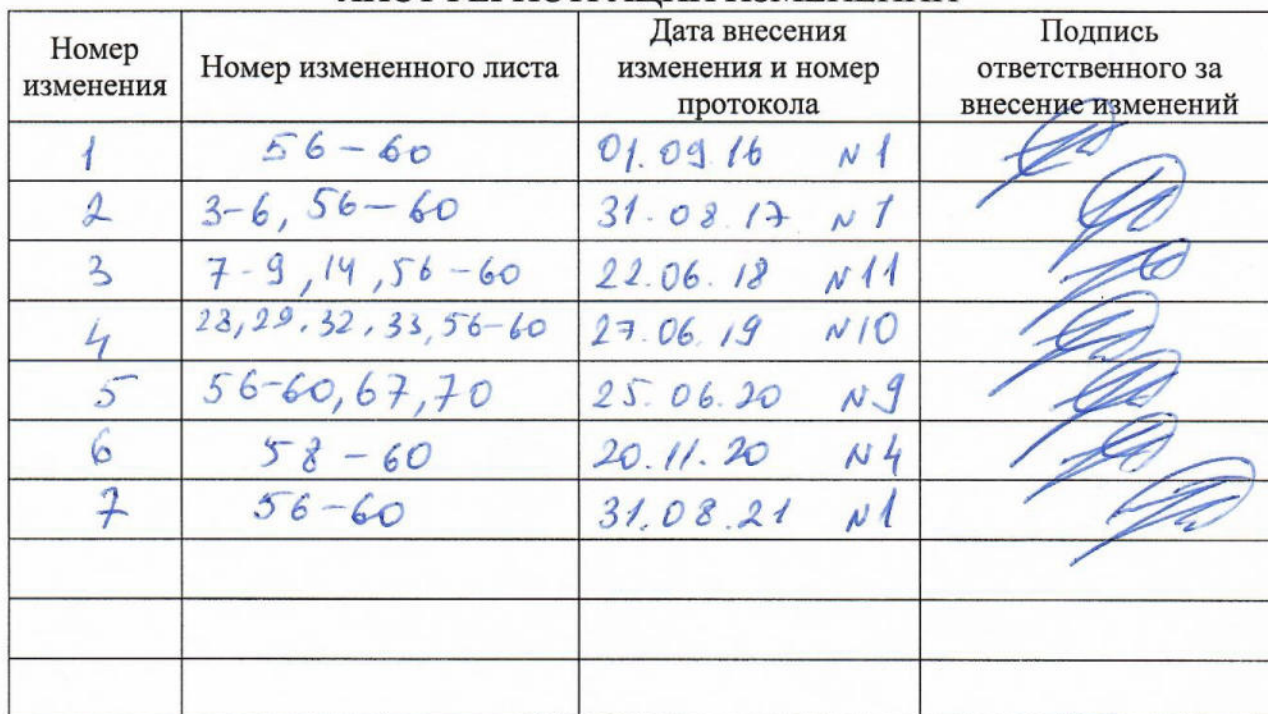 ЛИСТ РЕГИСТРАЦИИ ИЗМЕНЕНИЙ
Номер изменения
Номер измененного листа
Дата внесения изменения и номер протокола
Подпись ответственного за внесение изменений
1 56-60 01.09.16 N1
2 3-6, 56-60 31.08.17 N1
3 7-9, 14, 56-60 22.06.18 N11
4 28, 29, 32, 33, 56-60 27.06.19 N10
5 56-60, 67, 70 25.06.20 N9
6 58-60 20.11.20 N4
7 56-60 31.08.21 N1